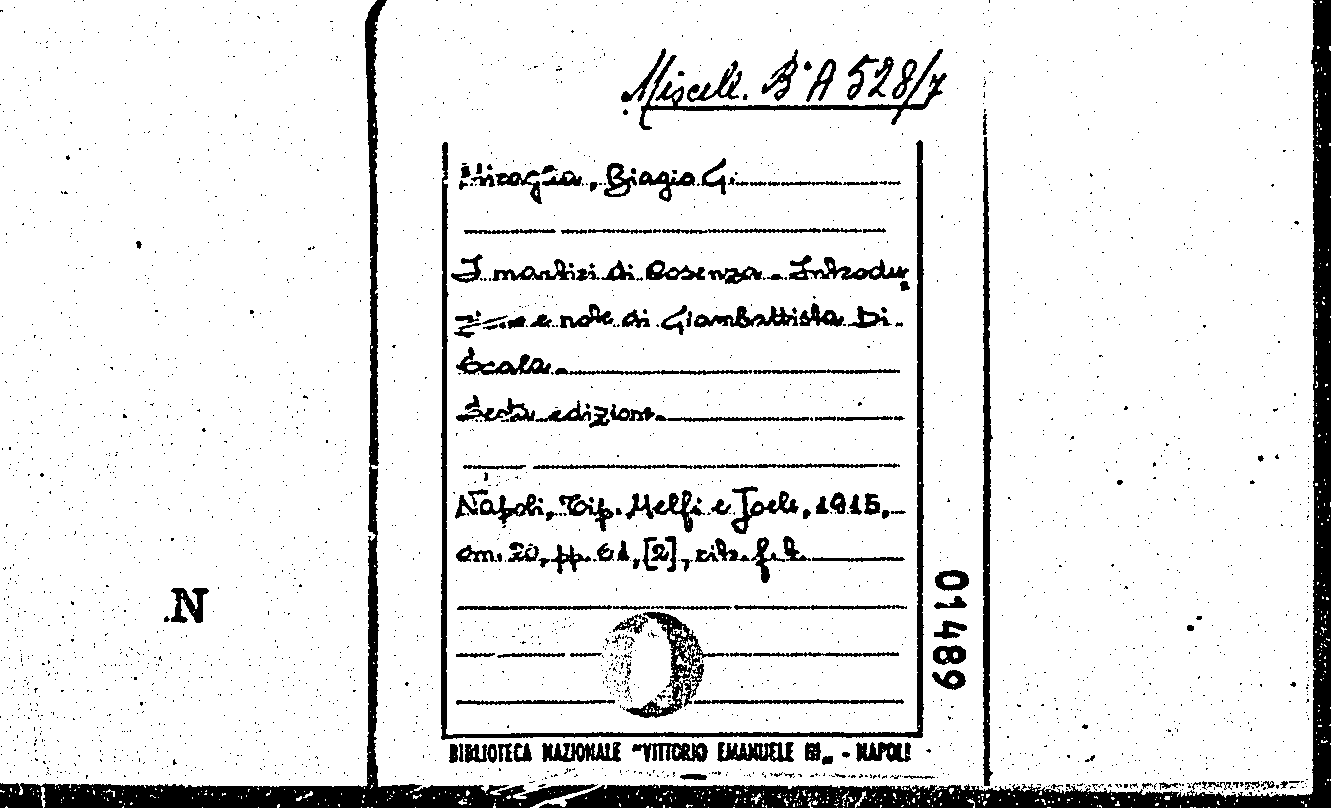 Miscell. B. A 528/7
Miraglia, Biagio G.
I martiri di Cosenza. Introdu-
zione e note di Giambattista Di
Scala.
Sesta edizione.
Napoli, Tip. Melfi e Joele, 1915,
cm. 20, pp. 61, [2], ritr. f. t.
N
01489
BIBLIOTECA NAZIONALE "VITTORIO EMANUELE III„ - NAPOLI